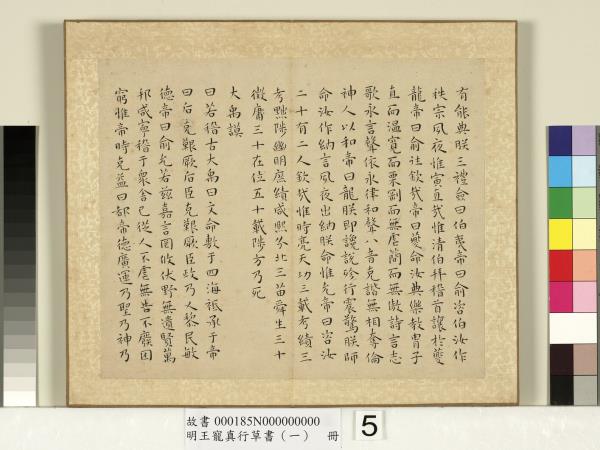 有能典朕三禮僉曰伯夷帝曰俞咨伯汝作
秩宗夙夜惟寅直哉惟清伯拜稽首讓於夔
龍帝曰俞往欽哉帝曰夔命汝典樂教冑子
直而溫寬而栗剛而無虐簡而無傲詩言志
歌永言聲依永律和聲八音克諧無相奪倫
神人以和帝曰龍朕即讒說殄行震驚朕師
命汝作納言夙夜出納朕命惟允帝曰咨汝
二十有二人欽哉惟時亮天功三載考績三
考黜陟幽明庶績咸熙分北三苗舜生三十
徵庸三十在位五十載陟方乃死
大禹謨
曰若稽古大禹曰文命敷于四海祗承于帝
曰后克艱厥后臣克艱厥臣政乃乂黎民敏
德帝曰俞允若茲嘉言罔攸伏野無遺賢萬
邦咸寧稽于衆舍己從人不虐無告不廢困
窮惟帝時克益曰都帝德廣運乃聖乃神乃
故書 000185N000000000
明王寵真行草書（一） 冊
5